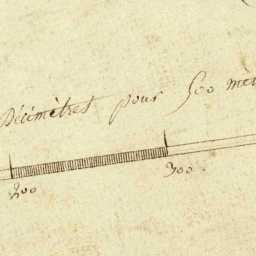 Décimètres pour 500 mèt
200 300.